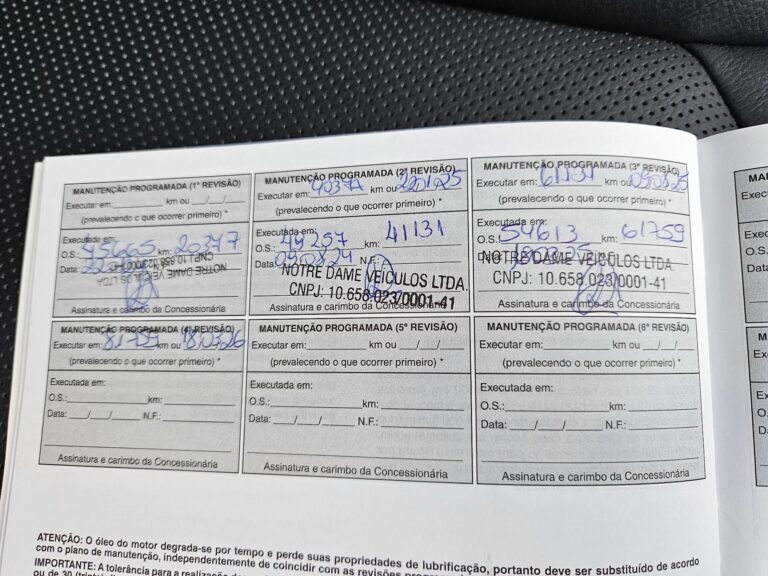 MANUTENÇÃO PROGRAMADA (1ª REVISÃO)
Executar em: km ou / /
(prevalecendo o que ocorrer primeiro) *
Executada em:
O.S.: 45665 km: 20347
Data:
NOTRE DAME VEÍCULOS LTDA
CNPJ: 10.658.023/0001-41
Assinatura e carimbo da Concessionária
MANUTENÇÃO PROGRAMADA (2ª REVISÃO)
Executar em: 40377 km ou 220125
(prevalecendo o que ocorrer primeiro) *
Executada em:
O.S.: 49257 km: 41131
Data: 090824 N.F.:
NOTRE DAME VEÍCULOS LTDA.
CNPJ: 10.658.023/0001-41
Assinatura e carimbo da Concessionária
MANUTENÇÃO PROGRAMADA (3ª REVISÃO)
Executar em: 61131 km ou 090825
(prevalecendo o que ocorrer primeiro) *
Executada em:
O.S.: 54613 km: 61759
Data: 180325
NOTRE DAME VEÍCULOS LTDA.
CNPJ: 10.658.023/0001-41
Assinatura e carimbo da Concessionária
MANUTENÇÃO PROGRAMADA (4ª REVISÃO)
Executar em: 81759 km ou 180326
(prevalecendo o que ocorrer primeiro) *
Executada em:
O.S.: km:
Data: / / N.F.:
Assinatura e carimbo da Concessionária
MANUTENÇÃO PROGRAMADA (5ª REVISÃO)
Executar em: km ou / /
(prevalecendo o que ocorrer primeiro) *
Executada em:
O.S.: km:
Data: / / N.F.:
Assinatura e carimbo da Concessionária
MANUTENÇÃO PROGRAMADA (6ª REVISÃO)
Executar em: km ou / /
(prevalecendo o que ocorrer primeiro) *
Executada em:
O.S.: km:
Data: / / N.F.:
Assinatura e carimbo da Concessionária
ATENÇÃO: O óleo do motor degrada-se por tempo e perde suas propriedades de lubrificação, portanto deve ser substituído de acordo
com o plano de manutenção, independentemente de coincidir com as revisões
IMPORTANTE: A tolerância para a realização